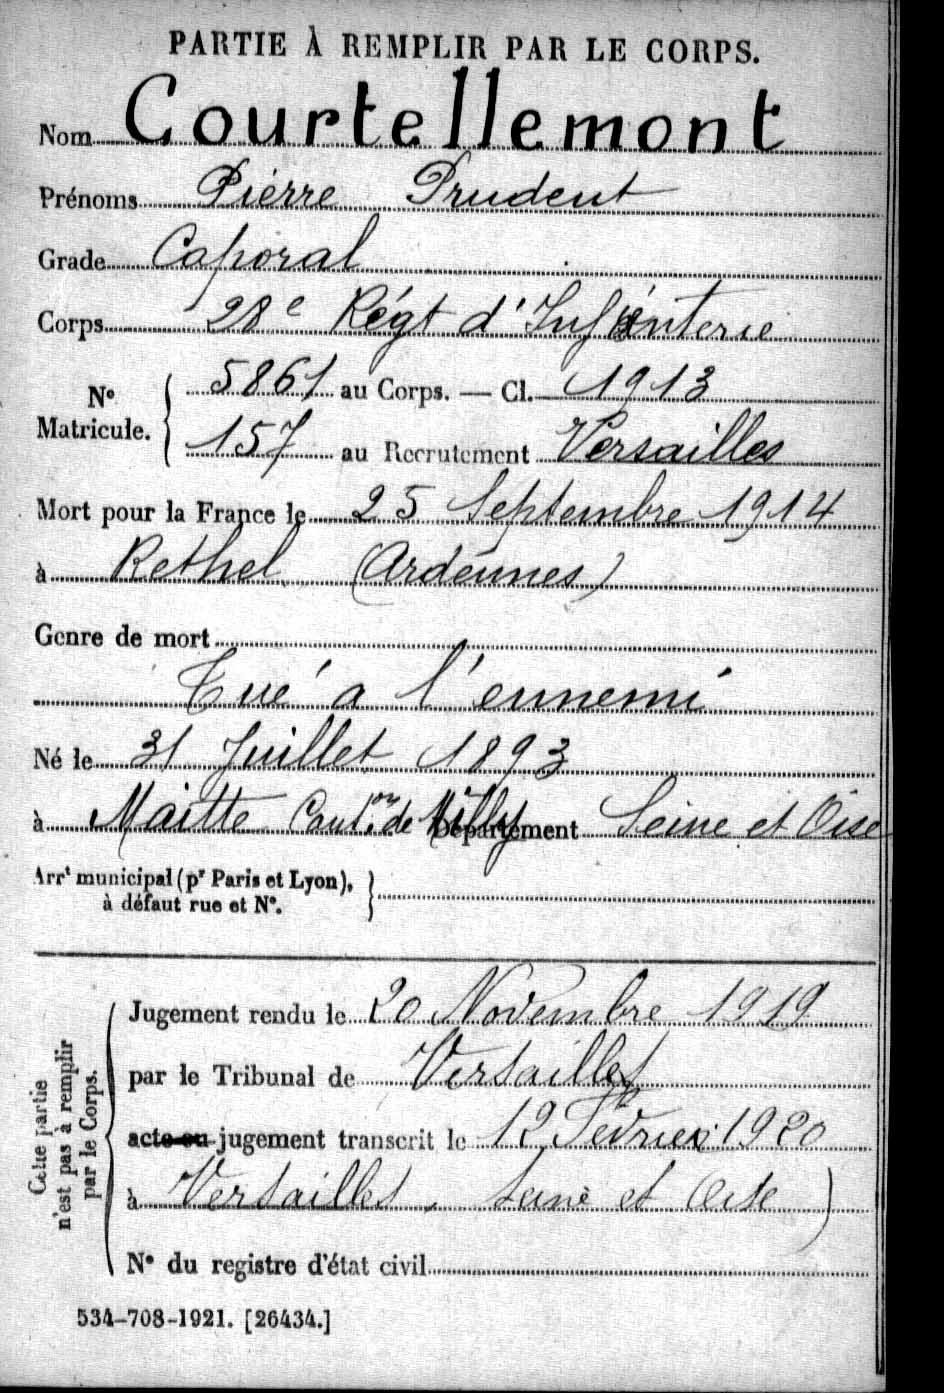 PARTIE À REMPLIR PAR LE CORPS.
Nom Courtellemont
Prénoms Pierre Prudent
Grade Caporal
Corps 28e Régt d'Infanterie
N° Matricule. 5861 au Corps. — Cl. 1913
157 au Recrutement Versailles
Mort pour la France le 25 Septembre 1914
à Rethel (Ardennes)
Genre de mort
Tué à l'ennemi
Né le 31 Juillet 1893
à Maitte Canton de Milly Département Seine et Oise
Arrt municipal (pr Paris et Lyon),
à défaut rue et N°.
Cette partie
n'est pas à remplir
par le Corps.
Jugement rendu le 20 Novembre 1919
par le Tribunal de Versailles
acte ou jugement transcrit le 12 Février 1920
à Versailles, Seine et Oise)
N° du registre d'état civil
534-708-1921. [26434.]